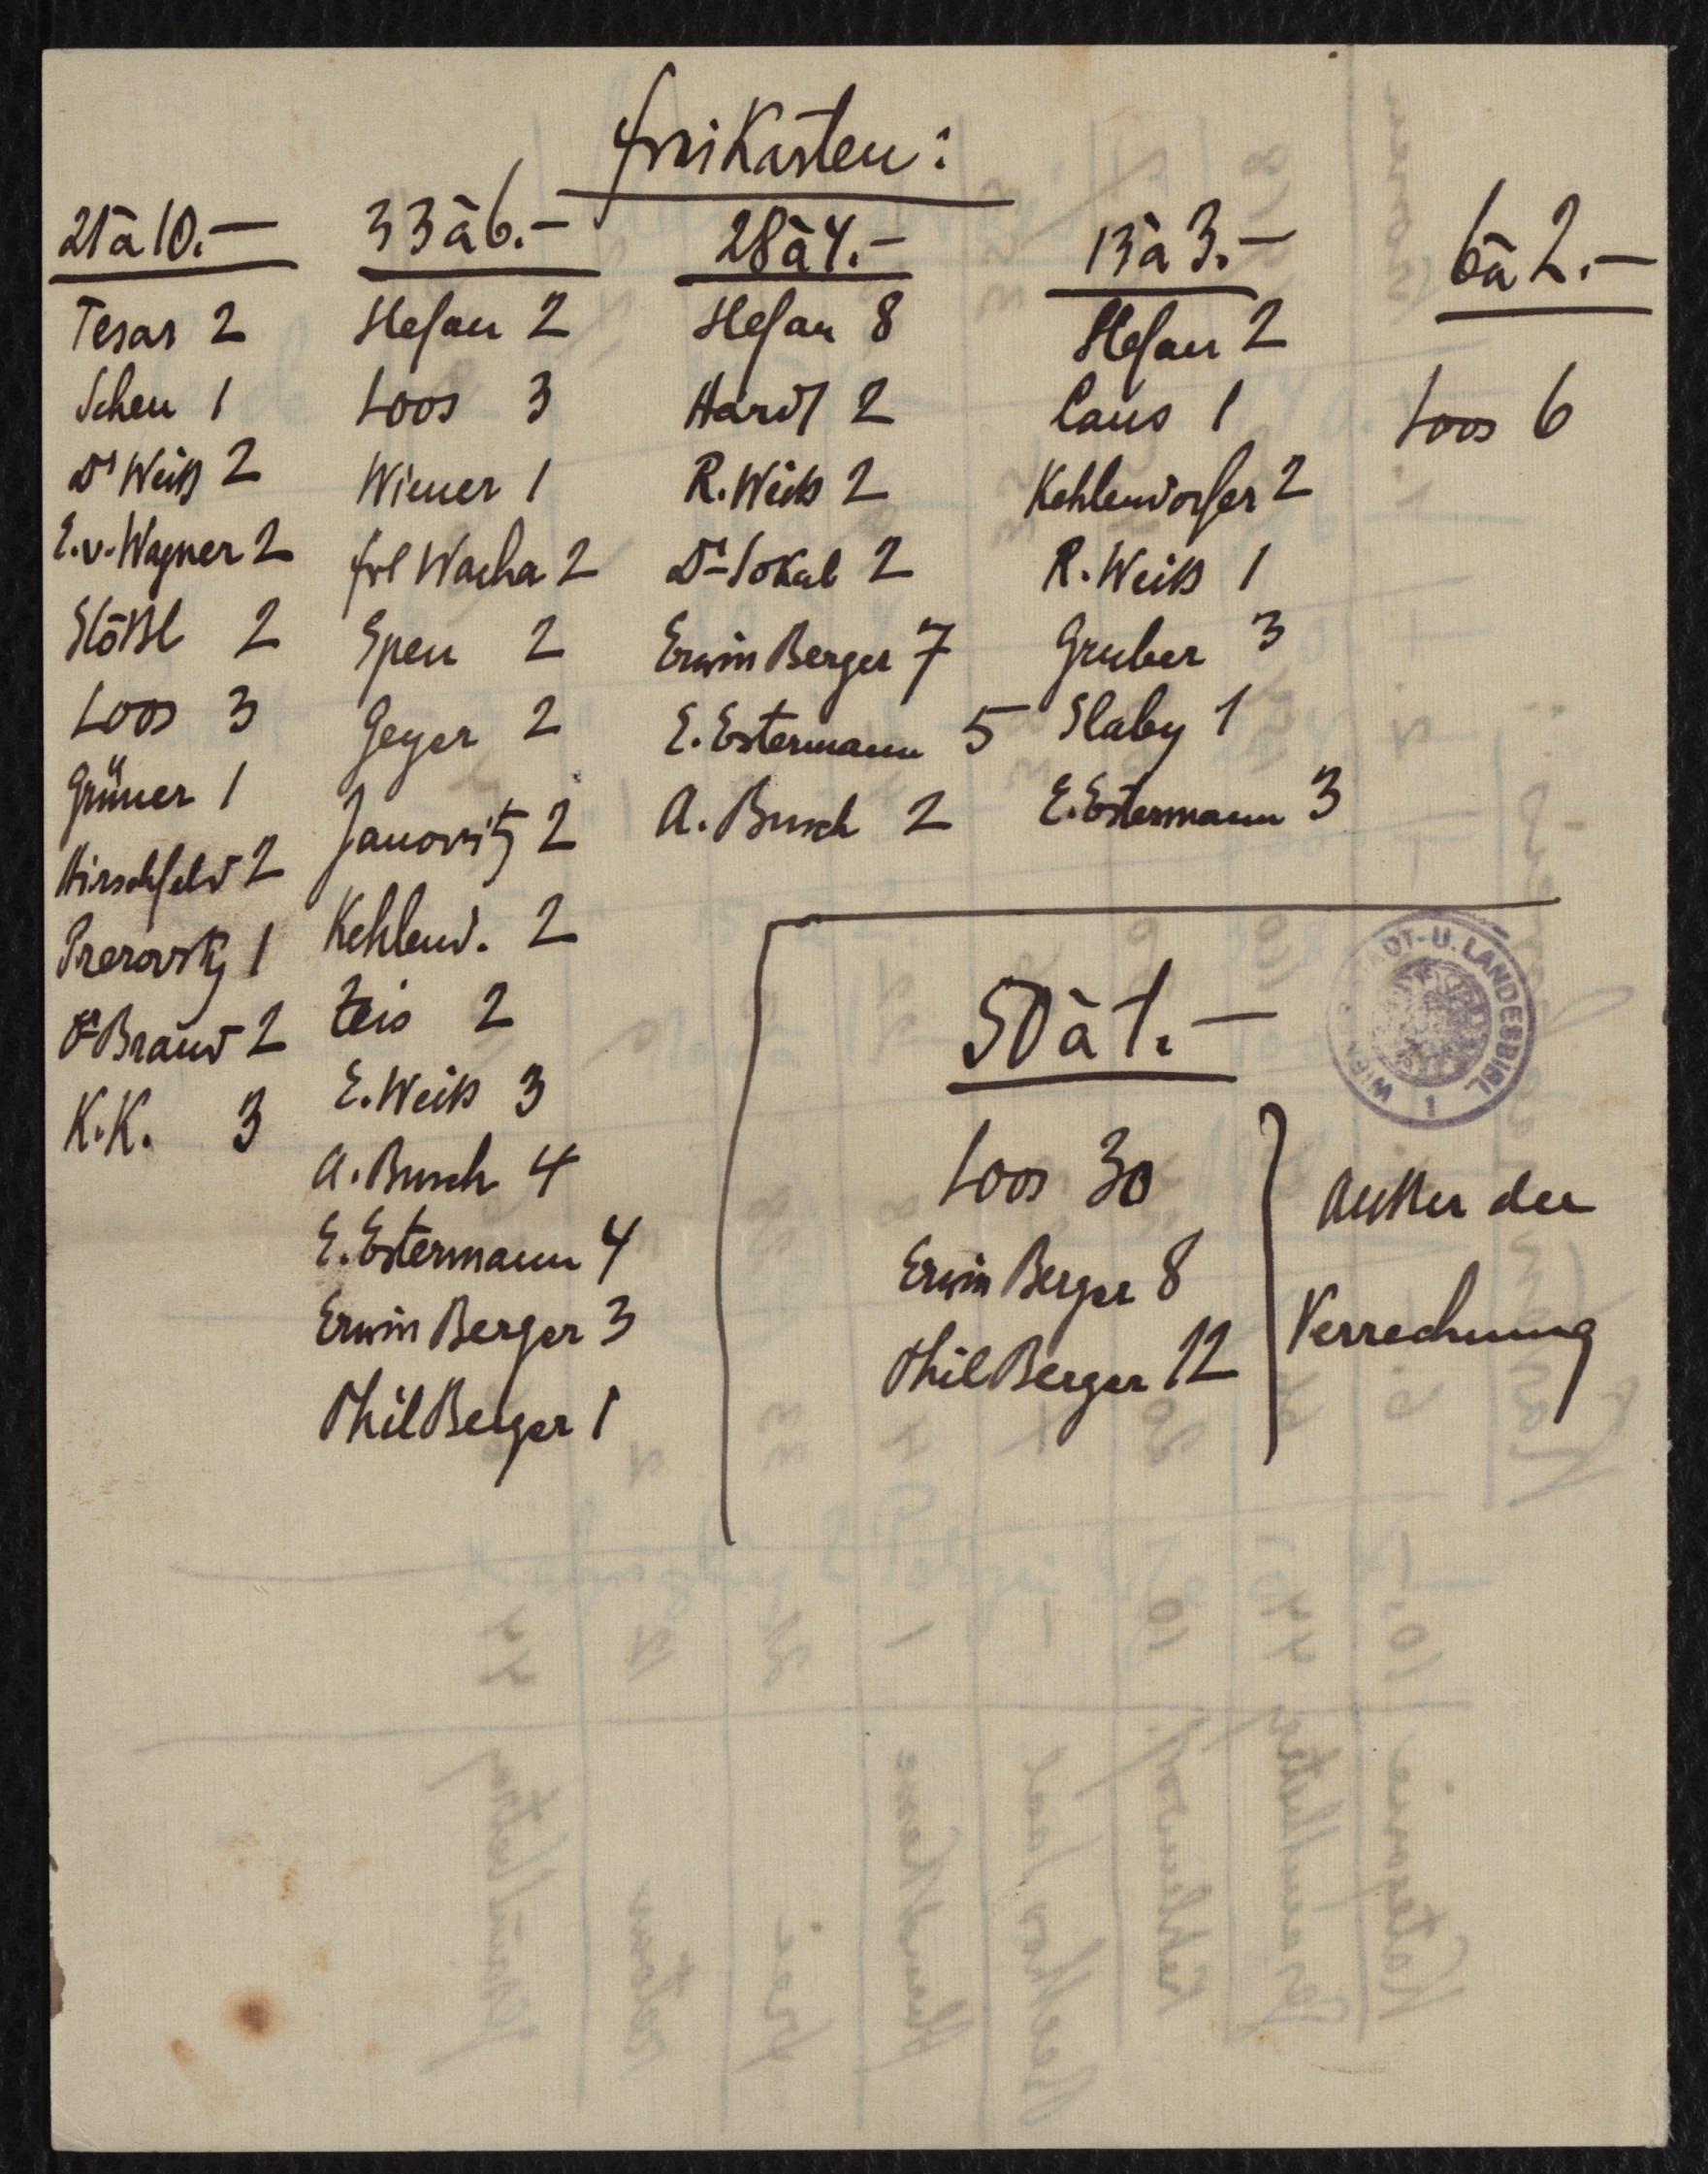 Freikarten:
21 à 10.—
Tesar 2
Scheu 1
Dr Weiß 2
E.v. Wagner 2
Stößl 2
Loos 3
Grüner 1
Hirschfeld 2
Prerovsky 1
Dr Brand 2
K.K. 3
33 à 6.—
Stefan 2
Loos 3
Wiener 1
Frl Wacha 2
Speu 2
Geyer 2
Janovitz 2
Kehlend. 2
Zeis 2
E. Weiß 3
A. Busch 4
E. Estermann 4
Erwin Berger 3
Phil Berger 1
28 à 4.—
Stefan 8
Hardt 2
R. Weiß 2
Dr Sokal 2
Erwin Berger 7
E. Estermann 5
A. Busch 2
13 à 3.—
Stefan 2
Caus 1
Kehlendorfer 2
R. Weiß 1
Gruber 3
Slaby 1
E. Estermann 3
6 à 2.—
Loos 6
50 à 1.—
Loos 30
Erwin Berger 8
Phil Berger 12
außer der
Verrechnung
WIEN STADT-U. LANDESBIBL.
1